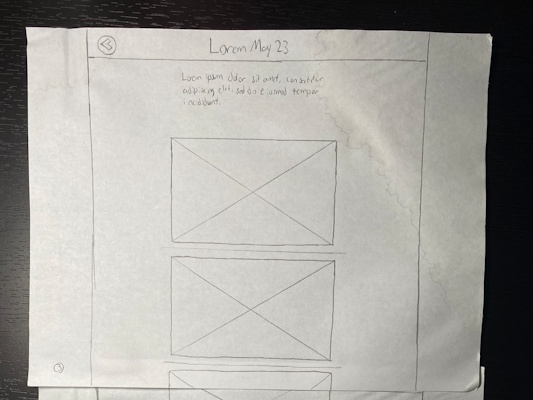 Lorem May 23
Lorem ipsum dolor sit amet, consectetur
adipiscing elit, sed do eiusmod tempor
incididunt.